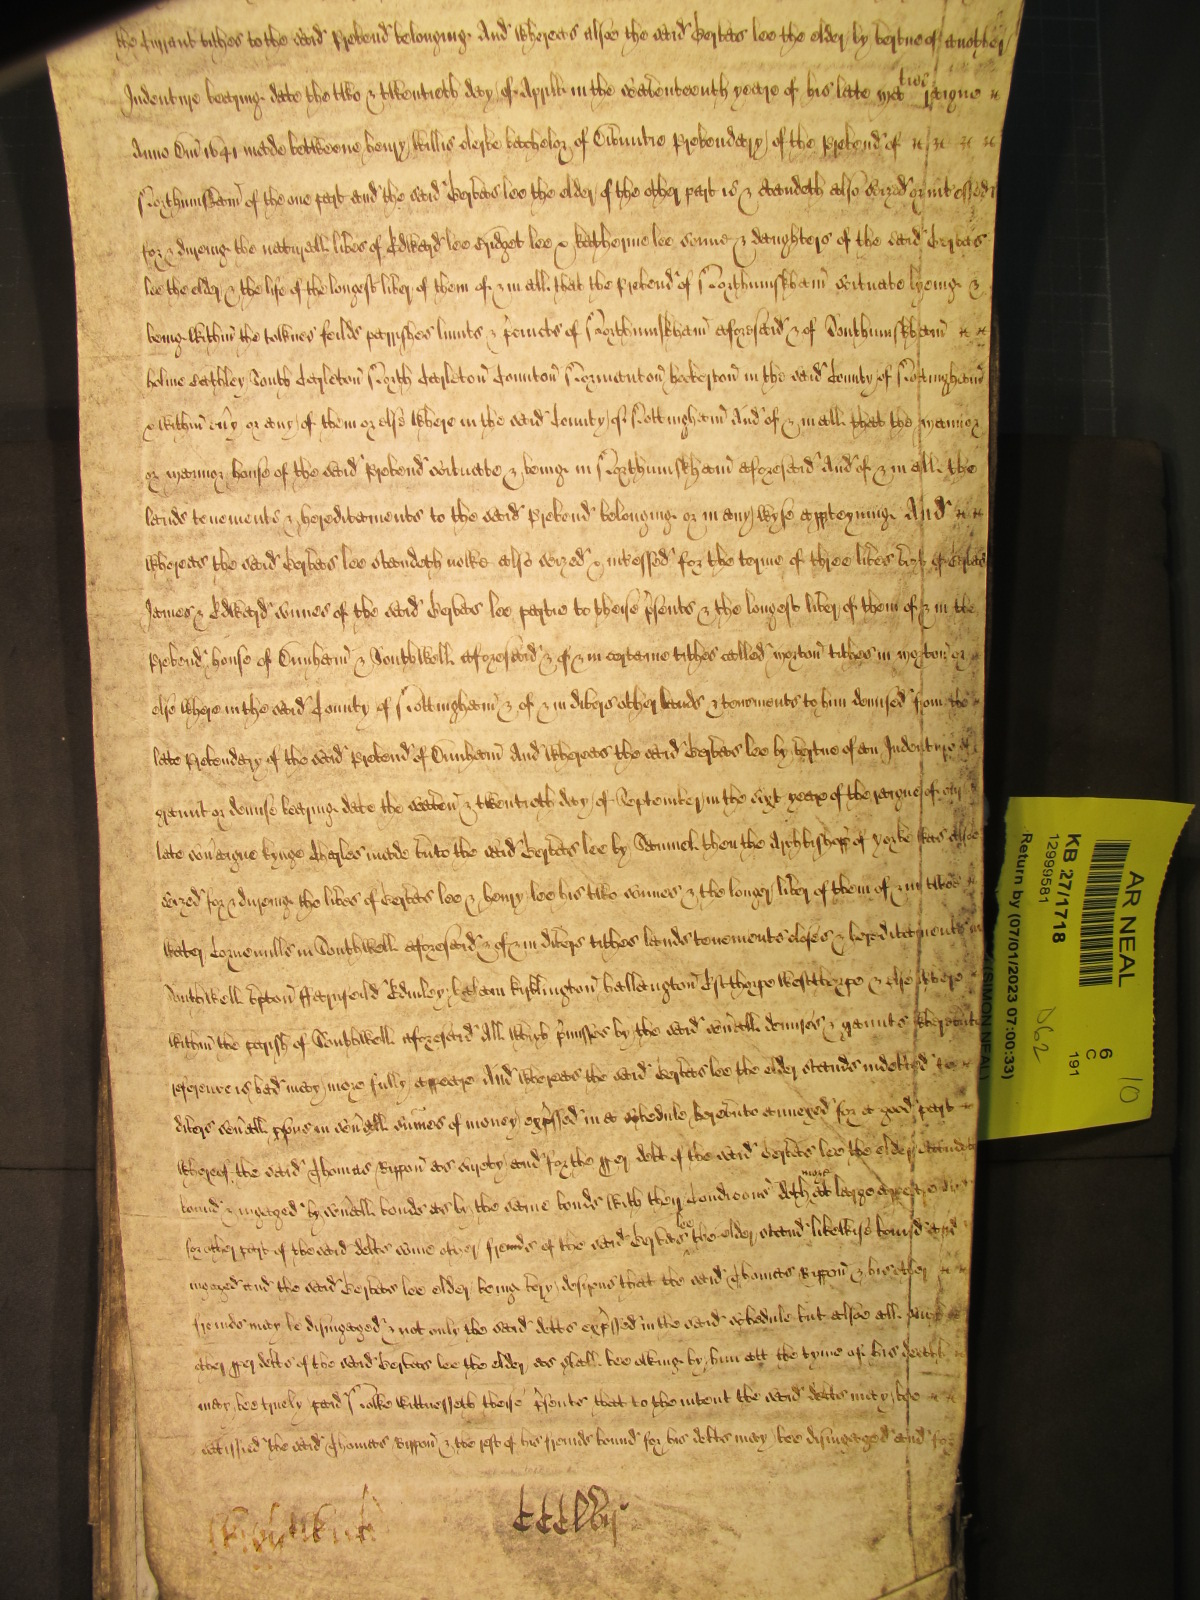 the Currant tithes to the said Prebend belonging And whereas alsoe the said Gervas lee the elder by vertue of another
Indenture bearing date the two & twentieth day of Aprill in the seaventeenth yeare of his late Maties raigne
Anno Dm̃ 1641 made betweene henry Killis Clerke batchelor of Prebendary of the Prebend of
Northmuskham̃ of the one part and the said Gervas lee the elder of the other part is & standeth also seized or int'essed
for & dureing the naturall lives of Edward lee Bridget lee & Katherine lee sonne & daughters of the said Gervas
lee the elder & the life of the longest liver of them of & in all that the Prebend of Northmuskham̃ scituate lyeing &
being within the townes feilds parrishes limits & p'cincts of Northmuskham̃ aforesaid & of Southmuskham̃
holme Bathley South Carleton North Carleton Normanton in the said County of Nottingham̃
& within any or any of them or else where in the said County of Nottingham̃ And of & in all that the mannor
or mannor house of the said Prebend scituate & being in Northmuskham̃ aforesaid And of & in all the
lands tenements & hereditaments to the said Prebend belonging or in any wyse app'teyning And
whereas the said Gervas lee standeth nowe also seized & int'essed for the terme of three lives vizt of Gervas
James & Edward sonnes of the said Gervas lee partie to theise p'sents & the longest liver of them of & in the
Prebend house of Dunham̃ & Southwell aforesaid & of & in certaine tithes called Morton tithes in Morton or
else where in the said County of Nottingham̃ & of & in divers other lands & tenements to him demised from the
late Prebendary of the said Prebend of Dunham̃ And whereas the said Gervas lee by vertue of an Indenture of
graunt or demise bearing date the seaven & twentieth day of September in the sixt yeare of the raigne of our
late sov'aigne Kynge Charles made unto the said Gervas lee by Samuel then the Archbishopp of Yorke was alsoe
seized for & dureing the lives of Gervas lee & henry lee his two sonnes & the longer liver of them of & in two
water Corne mills in Southwell aforesaid & of & in divers tithes lands tenements closes & hereditaments in
Southwell Upton ffarnseild Edingley halam Kirklington hallington Esthorpe Westthorpe & else where
within the parish of Southwell aforesaid All which p'misses by the said sev'all demises & graunts whereunto
reference is had may more fully appeare And whereas the said Gervas lee the elder stands indebted to
divers sev'all p'sons in sev'all summes of money exp'ssed in a schedule hereunto annexed for a good part
whereof the said Thomas Rippon as surety and for the p'per debt of the said Gervas lee the elder standeth
bound & ingaged by sev'all bonds as by the same bonds with their Condic̃ons doth more at large appeare And
for other part of the said debts some other friends of the said Gervas lee the elder stand likewise bound and
ingaged and the said Gervas lee elder being very desirous that the said Thomas Rippon & his other
friends may be disingaged & not only the said debts exp'ssed in the said schedule but alsoe all
other p'per debts of the said Gervas lee the elder as shall bee owing by him att the tyme of his death
may bee truely paid Nowe Wittnesseth theise p'sents that to the intent the said debts may bee
satisfied the said Thomas Rippon & the rest of his friends bound for his debts may bee disingaged and for
AR NEAL
KB 27/1718
12999581
Return by (07/01/2023 07:00:33)
(SIMON NEAL)
6
C
191
D62
10